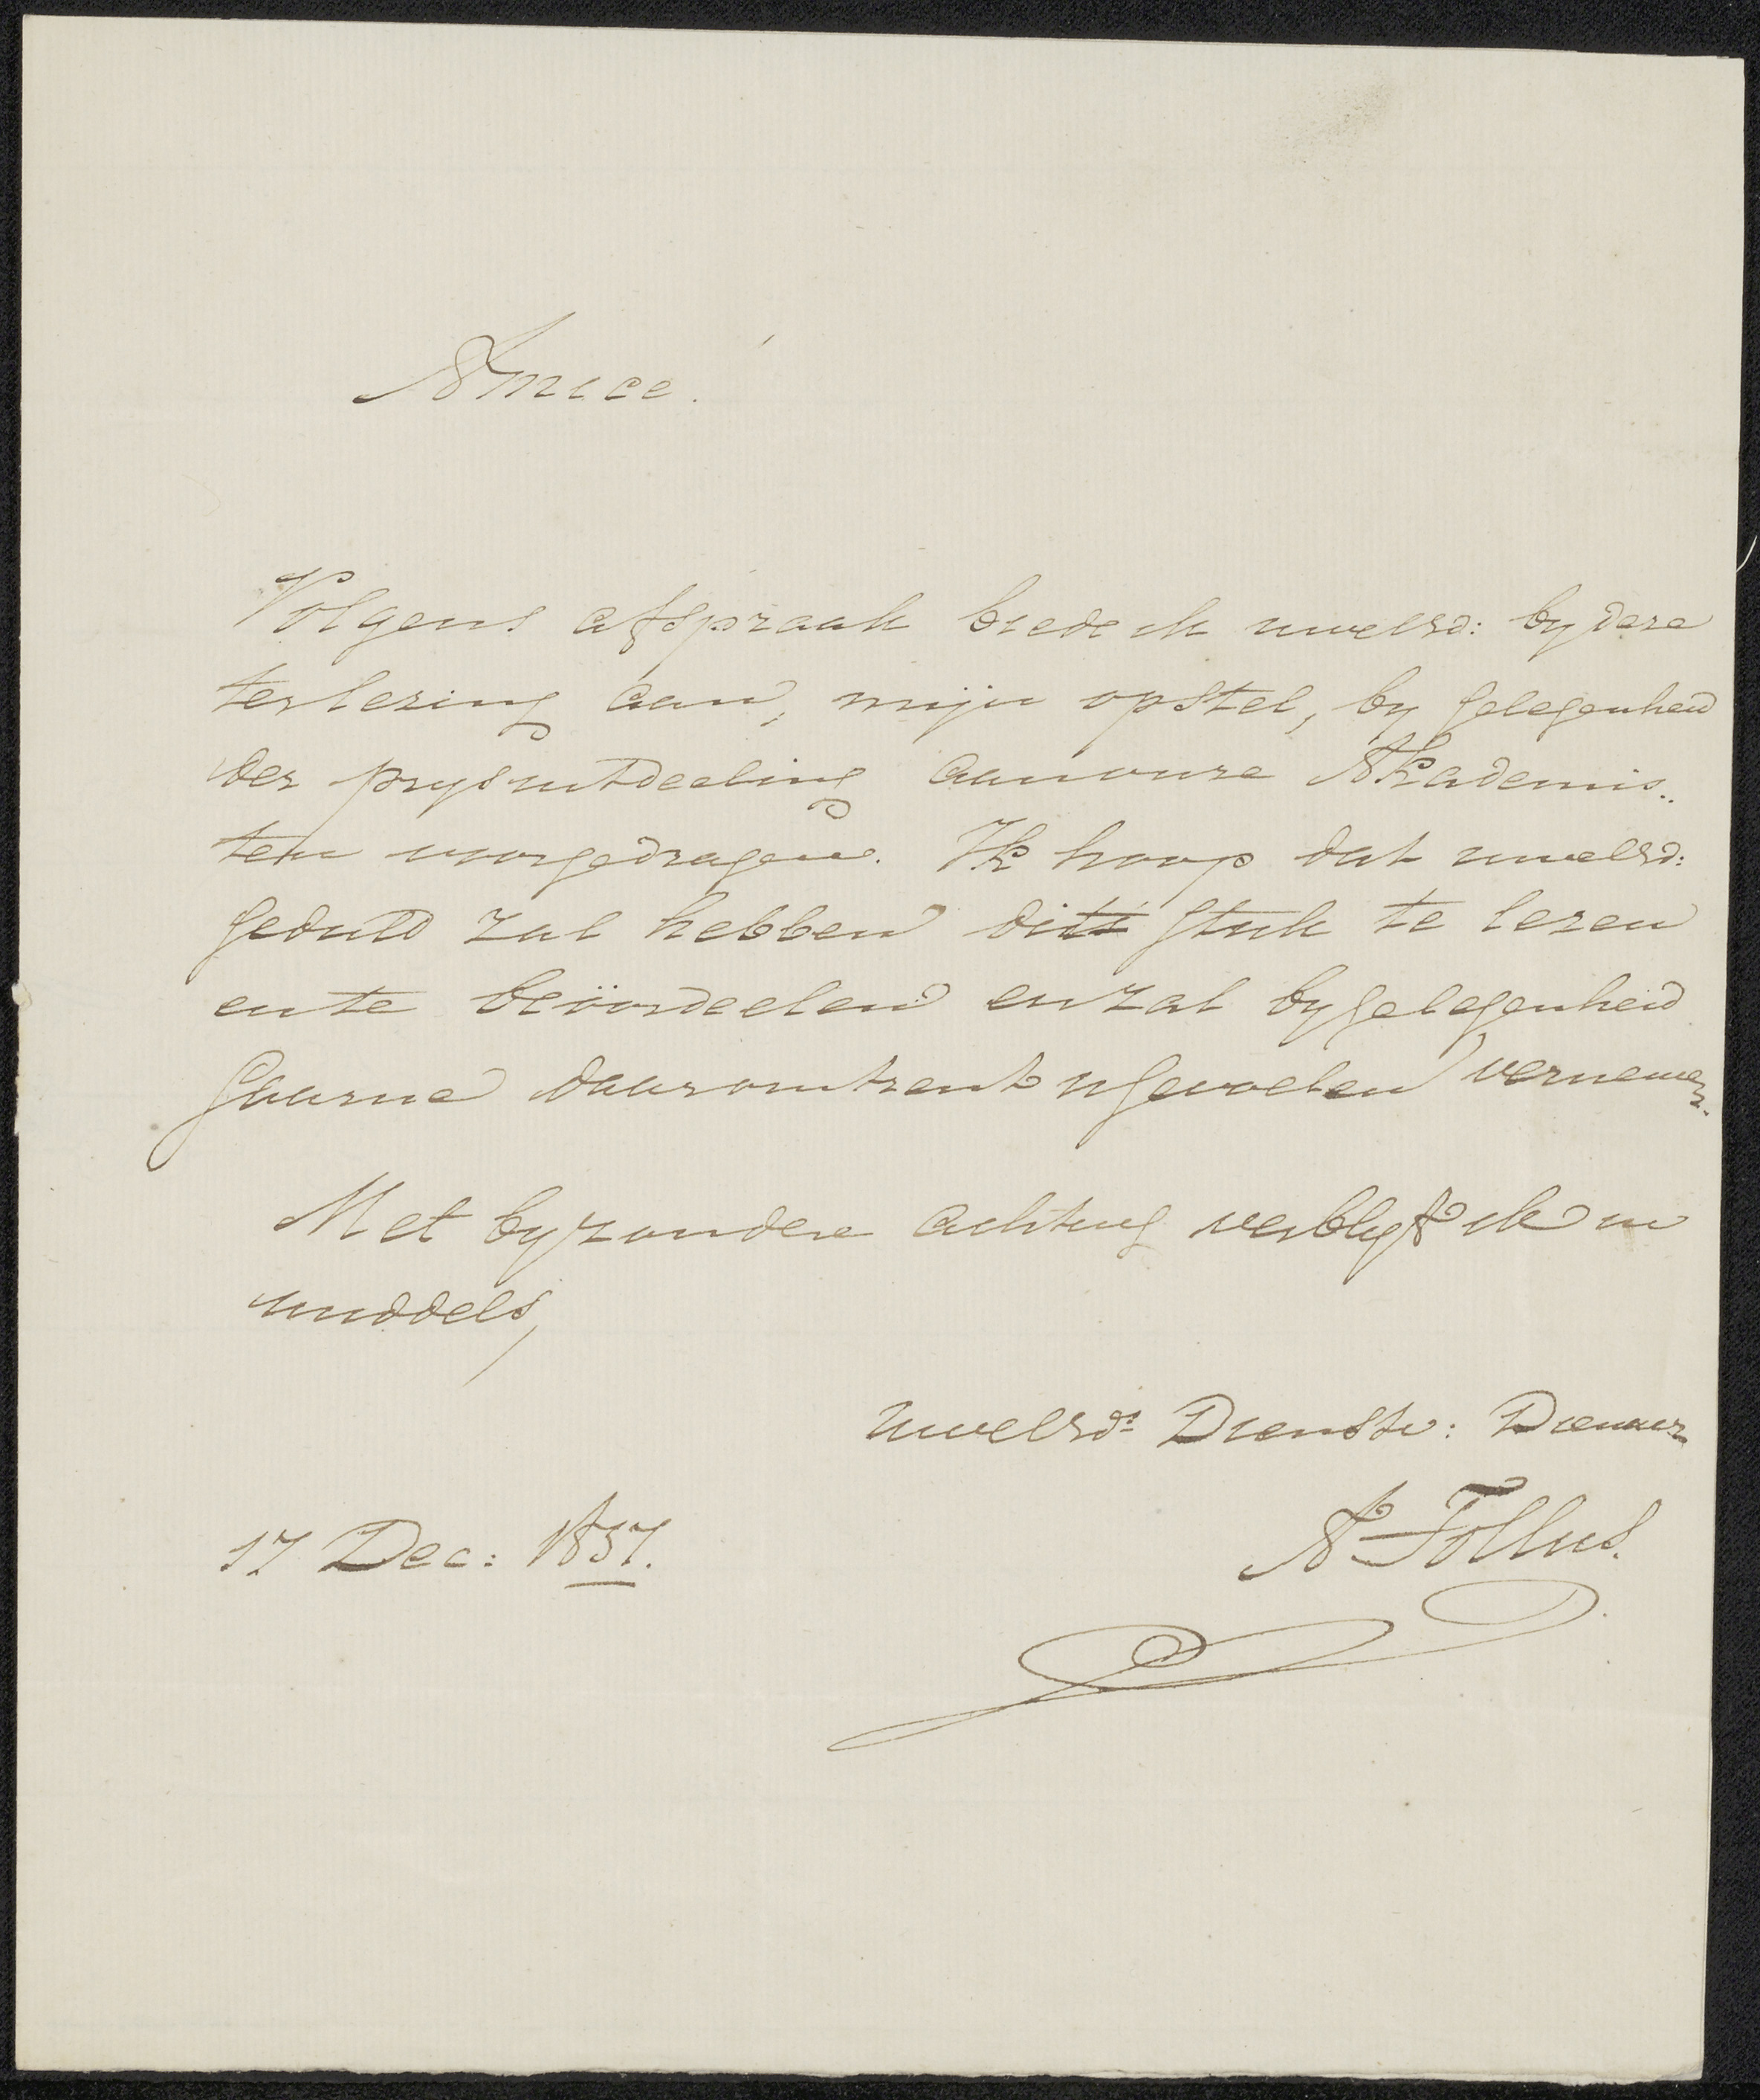 Amice.
Volgens afspraak biede ik uwelsd: by deze
ter lezing aan, mijn opstel, by gelegenheid
der prysuitdeeling aan onze Akademis..
ten voorgedragen. Ik hoop dat uwelsd:
geduld zal hebben dit stuk te lezen
en te beöordeelen en zal by gelegenheid
gaarne daaromtrent u gevoelen vernemen.
Met byzondere achting verblyf ik in
middels,
uwelsds Dienstv: Dienaar
17 Dec: 1837.
A Tollus.